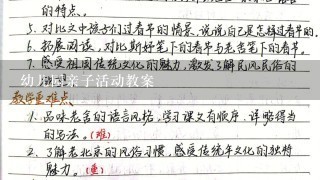 的特点。
5. 对比文中孩子们过春节的情景,说说自己是怎样过春节的。
6. 拓展阅读,对比斯好笔下的春节与老舍笔下的春节。
7. 感受祖国传统文化的魅力,激发了解民风民俗的
幼儿园亲子活动教案
教学重难点
1. 品味老舍的语言风格,学习课文有顺序、详略得当
的写法。(难)
2. 了解老北京的风俗习惯,感受传统年文化的独特
魅力。(重)